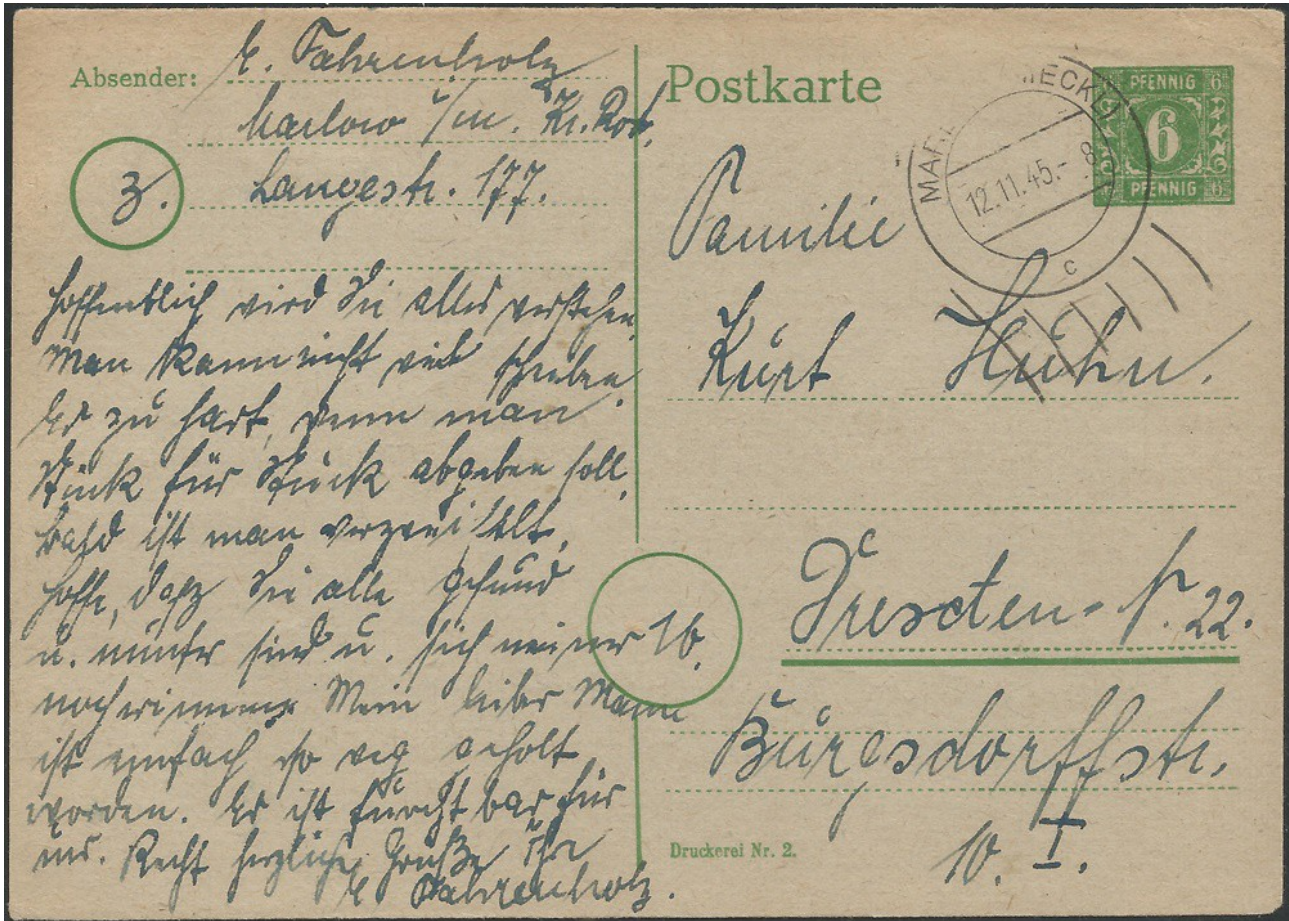 Absender: E. Fahrenholz
Marlow i/m. Kr. Rost.
Langestr. 177.
3.
Hoffentlich wird Sie alles verstehen
man kann nicht viel schreiben
Es zu hart, wenn man
Stück für Stück abgeben soll,
bald ist man verzweifelt,
hoffe, daß Sie alle gesund
u. munter sind u. sich meiner
noch erinnern Mein lieber Mann
ist einfach so weg geholt
worden. Es ist furchtbar für
uns. Recht herzliche Grüße Ihre
E Fahrenholz.
Postkarte
PFENNIG
6
PFENNIG
MECKL
12.11.45.- 8
c
Familie
Kurt Huhn.
16.
Dresden-N. 22.
Bürgsdorffstr.
10. I.
Druckerei Nr. 2.